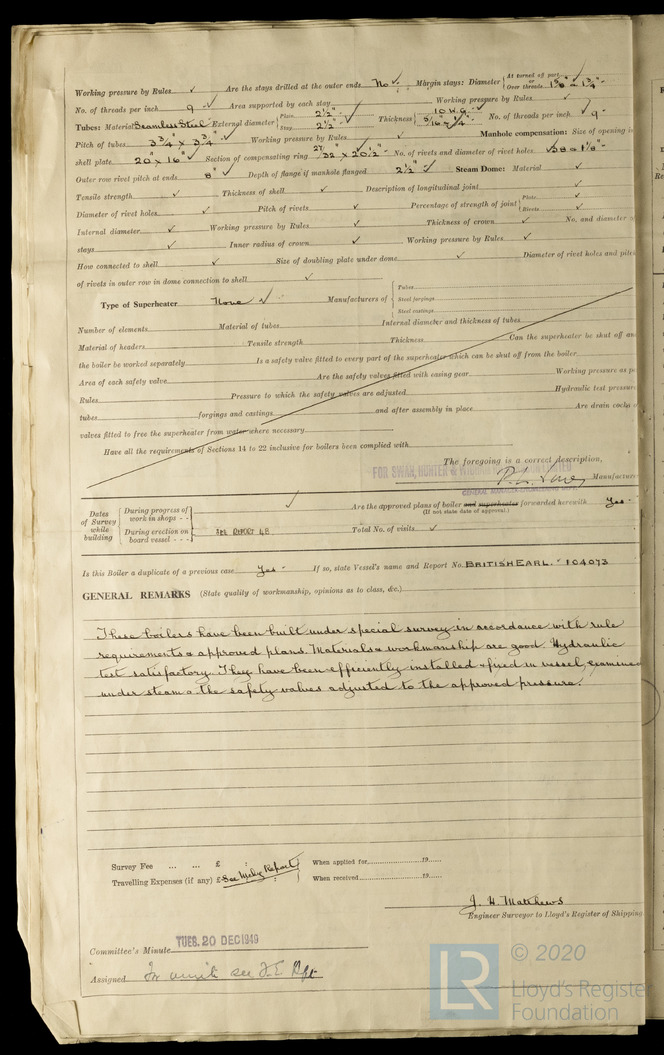 Working pressure by Rules ✓ Are the stays drilled at the outer ends No ✓ Margin stays: Diameter { At turned off part or Over threads 1 5/8" & 1 3/4"
No. of threads per inch 9 ✓ Area supported by each stay Working pressure by Rules ✓
Tubes: Material Seamless Steel External diameter { Plain 2½" Stay 2½" ✓ Thickness { 10 W.G. 5/16" & ¼" No. of threads per inch 9
Pitch of tubes 3 3/4" × 3 3/4" ✓ Working pressure by Rules ✓ Manhole compensation: Size of opening in
shell plate 20" × 16" ✓ Section of compensating ring 27/32" × 20½" No. of rivets and diameter of rivet holes 38 @ 1⅛"
Outer row rivet pitch at ends 8" ✓ Depth of flange if manhole flanged 2½" ✓ Steam Dome: Material ✓
Tensile strength ✓ Thickness of shell ✓ Description of longitudinal joint ✓
Diameter of rivet holes ✓ Pitch of rivets ✓ Percentage of strength of joint { Plate ✓ Rivets ✓
Internal diameter ✓ Working pressure by Rules ✓ Thickness of crown ✓ No. and diameter of
stays ✓ Inner radius of crown ✓ Working pressure by Rules ✓
How connected to shell ✓ Size of doubling plate under dome ✓ Diameter of rivet holes and pitch
of rivets in outer row in dome connection to shell ✓
Type of Superheater None ✓ Manufacturers of { Tubes Steel forgings Steel castings
Number of elements Material of tubes Internal diameter and thickness of tubes
Material of headers Tensile strength Thickness Can the superheater be shut off and
the boiler be worked separately Is a safety valve fitted to every part of the superheater which can be shut off from the boiler
Area of each safety valve Are the safety valves fitted with easing gear Working pressure as per
Rules Pressure to which the safety valves are adjusted Hydraulic test pressure
tubes forgings and castings and after assembly in place Are drain cocks or
valves fitted to free the superheater from water where necessary
Have all the requirements of Sections 14 to 22 inclusive for boilers been complied with
The foregoing is a correct description,
FOR SWAN, HUNTER & WIGHAM RICHARDSON LIMITED
Manufacturer
Dates of Survey while building { During progress of work in shops - - ✓ During erection on board vessel - - - SEE REPORT 4B
Are the approved plans of boiler and superheater forwarded herewith Yes -
(If not state date of approval.)
Total No. of visits ✓
Is this Boiler a duplicate of a previous case Yes - If so, state Vessel's name and Report No. BRITISH EARL. - 104073
GENERAL REMARKS (State quality of workmanship, opinions as to class, &c.)
These boilers have been built under special survey in accordance with rule
requirements & approved plans. Materials & workmanship are good. Hydraulic
test satisfactory. They have been efficiently installed & fixed in vessel, examined
under steam & the safety valves adjusted to the approved pressure.
Survey Fee ... ... £ : : When applied for 19
Travelling Expenses (if any) £ See Mchy Report When received 19
J. H. Matthews
Engineer Surveyor to Lloyd's Register of Shipping
Committee's Minute TUES. 20 DEC 1949
Assigned see F.E. Rpt
LR © 2020
Lloyd's Register
Foundation